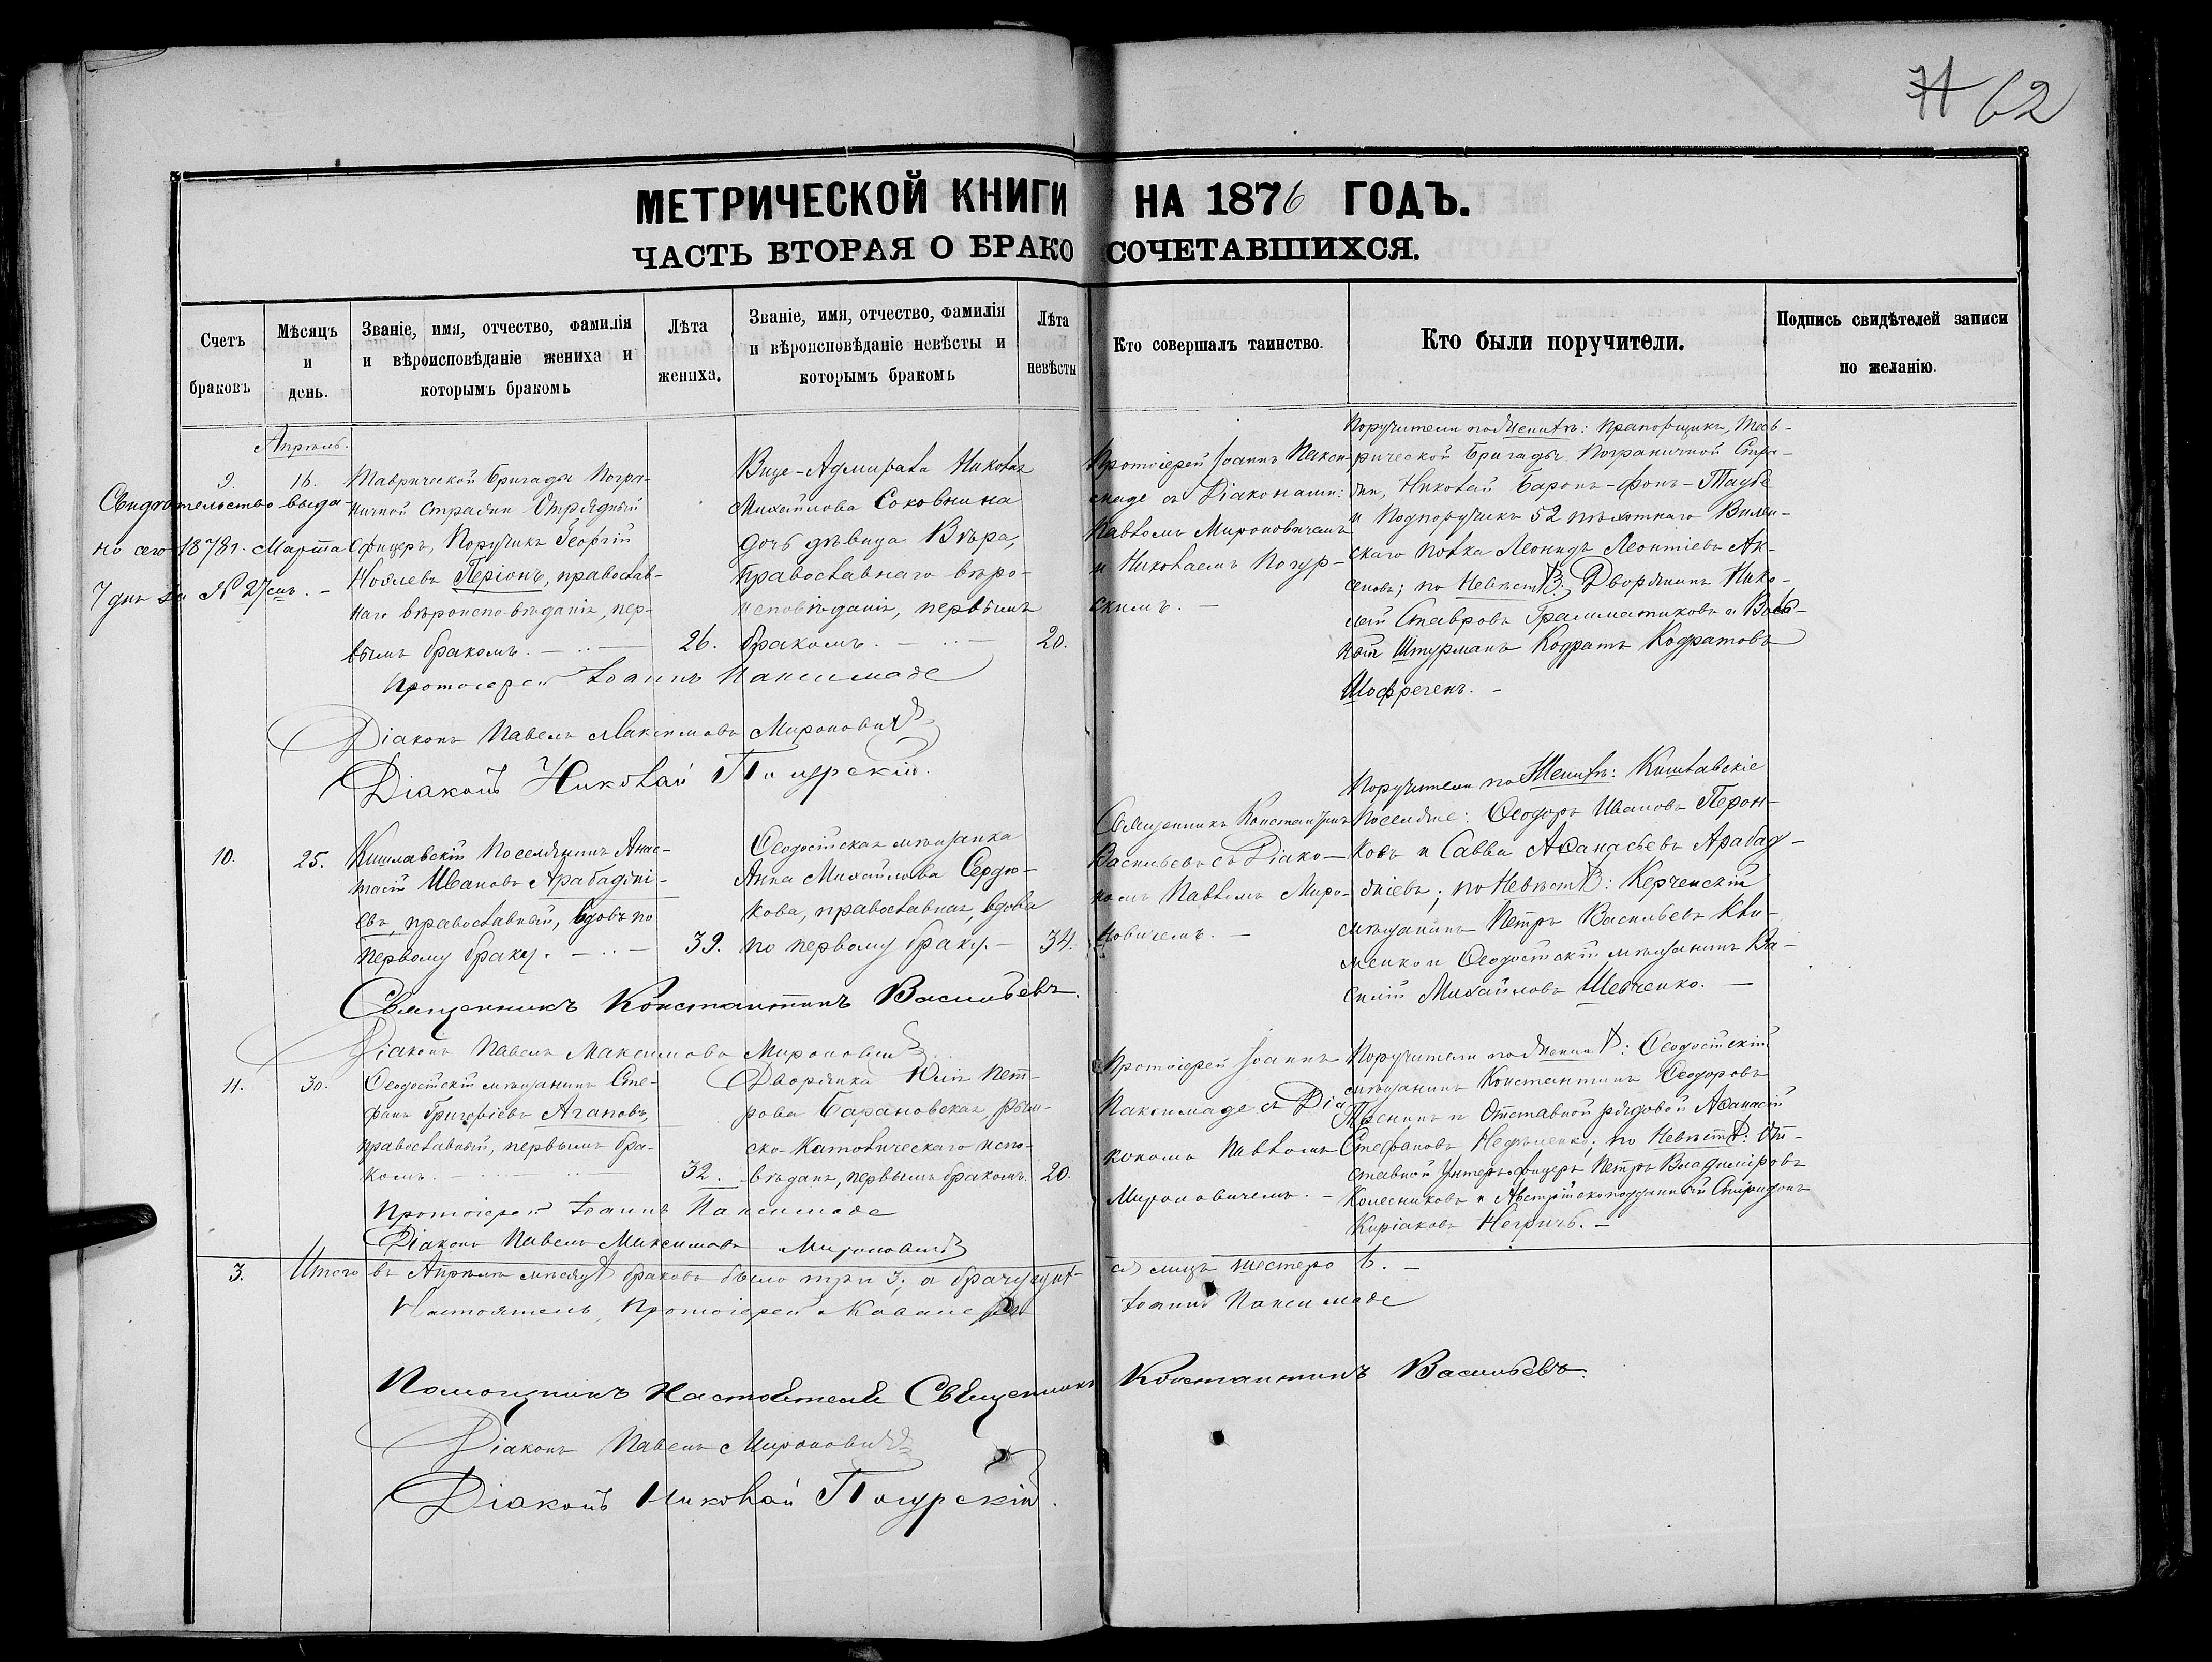 71 62
МЕТРИЧЕСКОЙ КНИГИ НА 1876 ГОДЪ.
ЧАСТЬ ВТОРАЯ О БРАКОСОЧЕТАВШИХСЯ.
Счетъ браковъ
Мѣсяцъ и день.
Званіе, имя, отчество, фамилія и вѣроисповѣданіе жениха и которымъ бракомъ
Лѣта жениха.
Званіе, имя, отчество, фамилія и вѣроисповѣданіе невѣсты и которымъ бракомъ
Лѣта невѣсты
Кто совершалъ таинство.
Кто были поручители.
Подпись свидѣтелей записи по желанію.
Апрѣль.
9.
16.
Свидѣтельство выда-
но сего 1878 г. Марта
7 дня за № 27емъ. –
Таврической Бригады Погра-
ничной Стражи Отрядный
Офицеръ, Поручикъ Георгій
Ноялевъ Періонъ, православ-
наго вѣроисповѣданія, пер-
вымъ бракомъ. –
26.
Вице-Адмирала Николая
Михайлова Соковнина
дочь дѣвица Вѣра,
православнаго вѣро-
исповѣданія, первымъ
бракомъ. –
20.
Протоіерей Іоаннъ Пакси-
маде съ Діаконами:
Павломъ Мироновичемъ
и Николаемъ Погур-
скимъ. –
Поручители по Женихѣ: Прапорщикъ, Тав-
рической Бригады Пограничной Стра-
жи, Николай Баронъ-фонъ-Таубе
и Подпоручикъ 52 пѣхотнаго Вилен-
скаго полка Леонидъ Леонтіевъ Ак-
сеновъ; по Невѣстѣ: Дворянинъ Нико-
лай Ставровъ Грамматиковъ и Воль-
ный Штурманъ Кодратъ Кодратовъ
Шофреченъ. –
Протоіерей Іоаннъ Паксимаде
Діаконъ Павелъ Максимовъ Мироновичъ
Діаконъ Николай Погурскій.
10.
25.
Кишлавскій Поселянинъ Анас-
тасій Ивановъ Арабаджі-
евъ, православный, вдовъ по
первому браку. –
39.
Ѳеодосійская мѣщанка
Анна Михайлова Сердю-
кова, православная, вдова
по первому браку. –
34.
Священникъ Константинъ
Васильевъ съ Діако-
номъ Павломъ Миро-
новичемъ. –
Поручители по Женихѣ: Кишлавскіе
Поселяне: Ѳеодоръ Ивановъ Перон-
ковъ и Савва Аѳанасьевъ Арабад-
жіевъ; по Невѣстѣ: Керченскій
мѣщанинъ Петръ Васильевъ Кли-
менко и Ѳеодосійскій мѣщанинъ Ва-
силій Михайловъ Шевченко. –
Священникъ Константинъ Васильевъ.
Діаконъ Павелъ Максимовъ Мироновичъ
11.
30.
Ѳеодосійскій мѣщанинъ Сте-
фанъ Григорьевъ Агаповъ,
православный, первымъ бра-
комъ. –
32.
Дворянка Юлія Пет-
рова Барановская, рим-
ско-Католическаго испо-
вѣданія, первымъ бракомъ.
20.
Протоіерей Іоаннъ
Паксимаде съ Діа-
кономъ Павломъ
Мироновичемъ. –
Поручители по Женихѣ: Ѳеодосійскій
мѣщанинъ Константинъ Ѳеодоровъ
и Отставной рядовой Аѳанасій
Стефановъ Недѣленко; по Невѣстѣ: От-
ставной Унтеръ-офицеръ Петръ Владиміровъ
Колесниковъ и Австрійскоподданный Спиридонъ
Киріаковъ Негричъ. –
Протоіерей Іоаннъ Паксимаде
Діаконъ Павелъ Максимовъ Мироновичъ
3. Итого въ Апрѣлѣ мѣсяцѣ браковъ было три 3; а брачущих-
ся лицъ шестеро 6. –
Настоятель, Протоіерей и Кавалеръ Іоаннъ Паксимаде
Помощникъ Настоятеля Священникъ Константинъ Васильевъ.
Діаконъ Павелъ Мироновичъ
Діаконъ Николай Погурскій.